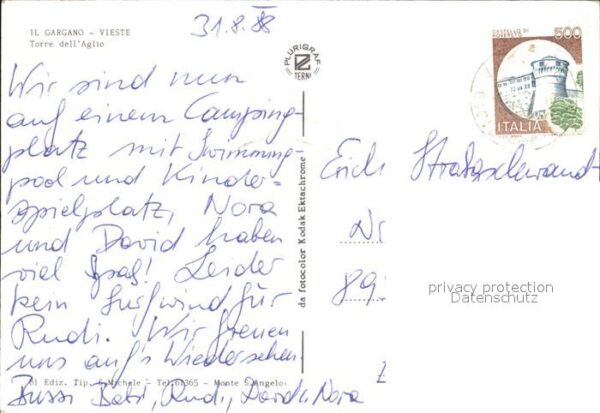 IL GARGANO - VIESTE
Torre dell'Aglio
31.8.88
PLURIGRAF
TERNI
CASTELLO DI
ROVERETO
500
ITALIA
Wir sind nun
auf einem Camping-
platz mit Swimming-
pool und Kinder-
spielplatz, Nora
und David haben
viel Spaß! Leider
kein Surfwind für
Rudi. Wir freuen
uns auf's Wiedersehen
Bussi Babsi, Rudi, David u Nora
da fotocolor Kodak Ektachrome
Erich
Nr
89
privacy protection
Datenschutz
81 Ediz. Tip. S. Michele - Tel. 61365 - Monte S. Angelo